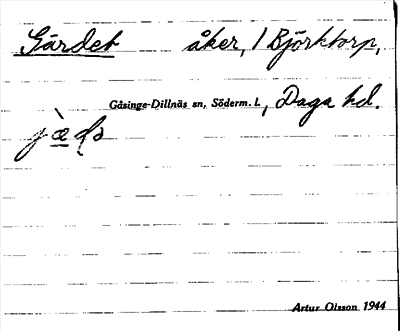 Gärdet åker, / Björktorp,
Gåsinge-Dillnäs sn, Söderm. l., Daga hd.
Artur Olsson 1944